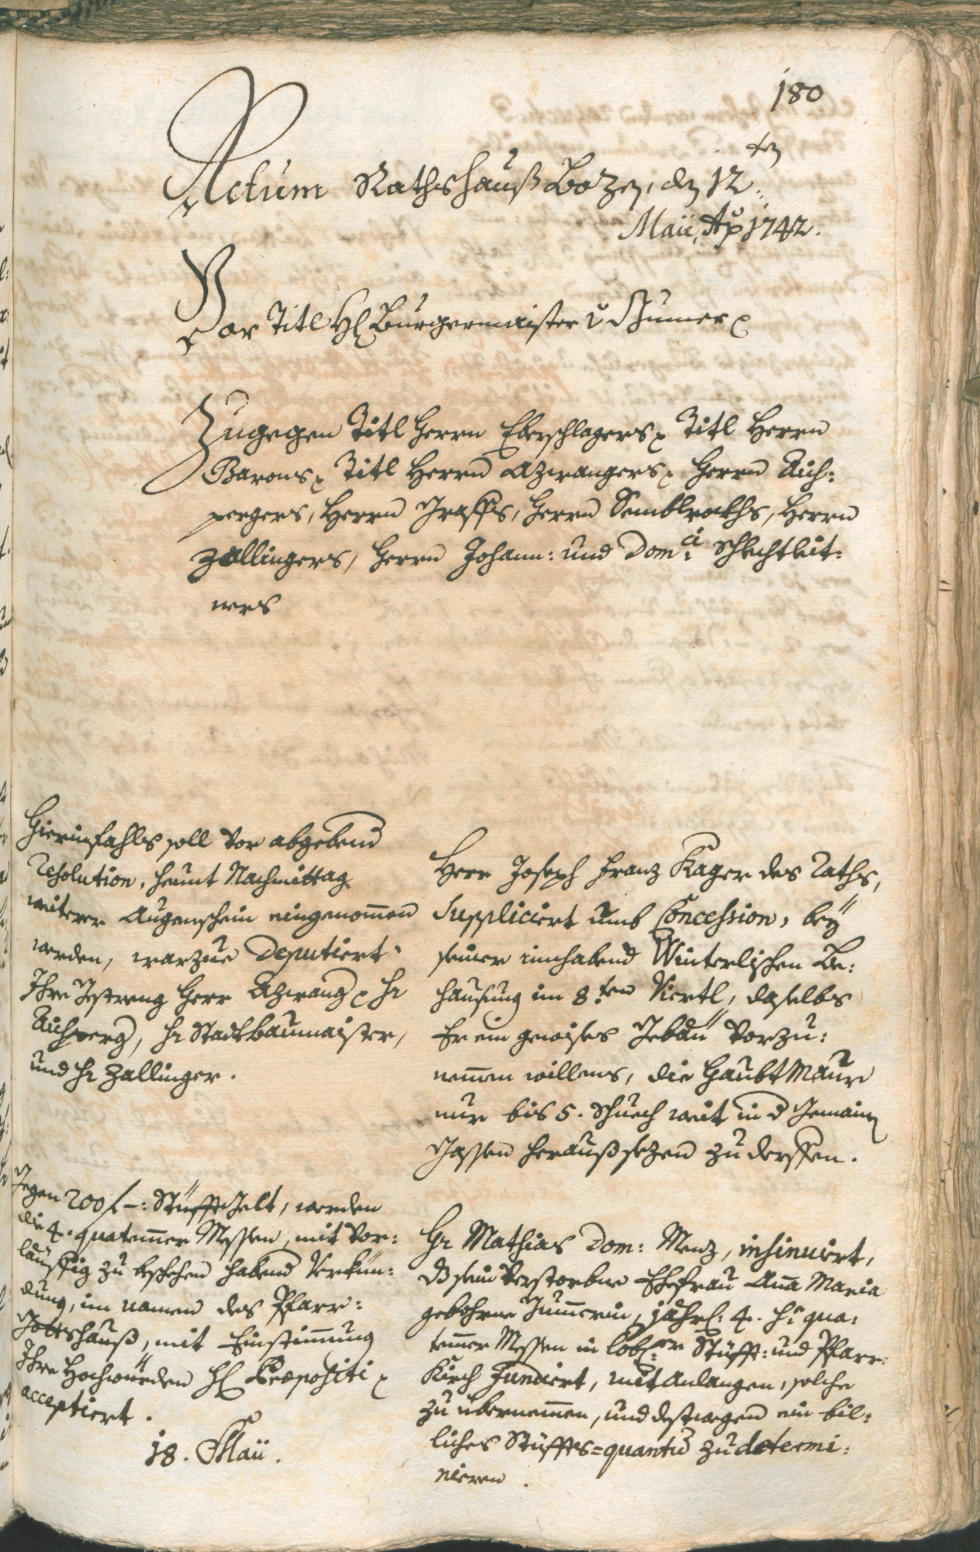 180
Actum Rathshauß Bozen, den 12ten
Maii, Ao 1742.
Vor Titl H: Burgermaister v
Zugegen Titl Herrn Eberschlagers Titl Herrn
Barons Titl Herrn Azwangers Herrn Aich=
pergers, Herrn Herrn Semblrocks, Herrn
Zallingers, Herrn Johann: und Domci: Schlechtleit=
ners
Hieringfahls soll vor abgebend
Resolution, heunt Nachmittag
weiterer Augenschein eingenommen
werden, warzue Deputiert
Ihro Gestreng Herr Azwang, Hr
Aichperg, Hr Stattbaumaister,
und Hr Zallinger.
Herr Joseph Franz Kager des Raths,
Suppliciert umb Concession, bey
seiner innhabend Winterlischen Be:
hausung im 8ten Viertl, daselbs
Er ein gewises Gebäu vorzu:
nemmen willens, die Haubt Maur
nur bis 5. Schuech weit in d Gemain
Gassen herauß sezen zu derffen.
Gegen 200 f –: Stüfft Gelt, werden
die 4. quatemmer Messen, mit vor:
läuffig zu bschehen habend Verkün:
dung, im namen des Pfarr:
Gottshauß, mit Einstimmung
Ihro Hochwürden H: Præpositi
acceptiert.
18. Maii.
Hr Mathias Dom: Menz, insinuirt,
dß sein verstorbne Ehefrau Anna Maria
gebohrne, jährl: 4. H: qua:
temmer Messen in löbl:er Stüfft: und Pfarr:
Kirch fundiert, mit Anlangen, solche
zu übernemmen, und destwegen ein bil:
liches Stüffts=quantu zu determi:
nieren.